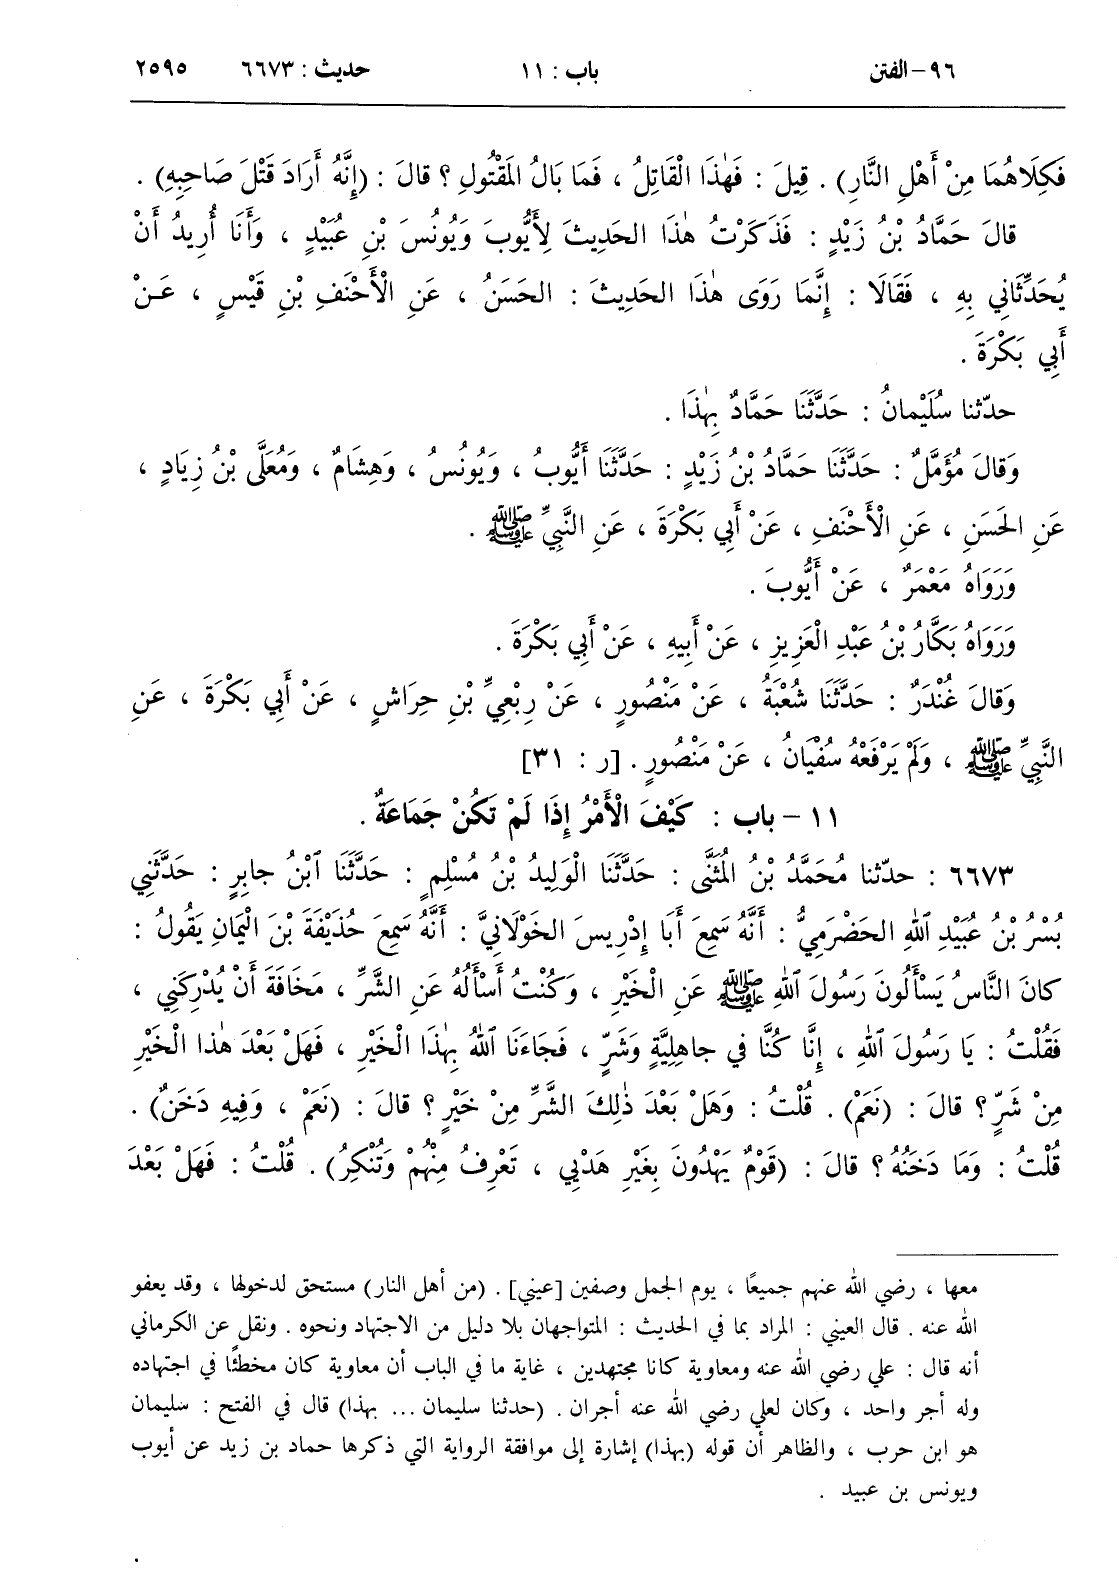 ٩٦- الفتن باب : ١١ حديث : ٦٦٧٣ ٢٥٩٥
فَكِلَاهُمَا مِنْ أَهْلِ النَّارِ) . قِيلَ : فَهٰذَا الْقَاتِلُ ، فَمَا بَالُ المَقْتُولِ ؟ قالَ : (إِنَّهُ أَرَادَ قَتْلَ صَاحِبِهِ) .
قالَ حَمَّادُ بْنُ زَيْدٍ : فَذَكَرْتُ هٰذَا الحَدِيثَ لِأَيُّوبَ وَيُونُسَ بْنِ عُبَيْدٍ ، وَأَنَا أُرِيدُ أَنْ
يُحَدِّثَانِي بِهِ ، فَقَالَا : إِنَّمَا رَوَى هٰذَا الحَدِيثَ : الحَسَنُ ، عَنِ الْأَحْنَفِ بْنِ قَيْسٍ ، عَنْ
أَبِي بَكْرَةَ .
حدّثنا سُلَيْمانُ : حَدَّثَنَا حَمَّادٌ بِهٰذَا .
وَقالَ مُؤَمَّلٌ : حَدَّثَنَا حَمَّادُ بْنُ زَيْدٍ : حَدَّثَنَا أَيُّوبُ ، وَيُونُسُ ، وَهِشَامٌ ، وَمُعَلَّى بْنُ زِيَادٍ ،
عَنِ الحَسَنِ ، عَنِ الْأَحْنَفِ ، عَنْ أَبِي بَكْرَةَ ، عَنِ النَّبِيِّ ﷺ .
وَرَوَاهُ مَعْمَرٌ ، عَنْ أَيُّوبَ .
وَرَوَاهُ بَكَّارُ بْنُ عَبْدِ الْعَزِيزِ ، عَنْ أَبِيهِ ، عَنْ أَبِي بَكْرَةَ .
وَقالَ غُنْدَرٌ : حَدَّثَنَا شُعْبَةُ ، عَنْ مَنْصُورٍ ، عَنْ رِبْعِيِّ بْنِ حِرَاشٍ ، عَنْ أَبِي بَكْرَةَ ، عَنِ
النَّبِيِّ ﷺ ، وَلَمْ يَرْفَعْهُ سُفْيَانُ ، عَنْ مَنْصُورٍ . [ر : ٣١]
١١ - باب : كَيْفَ الْأَمْرُ إِذَا لَمْ تَكُنْ جَمَاعَةٌ .
٦٦٧٣ : حدّثنا مُحَمَّدُ بْنُ المُثَنَّى : حَدَّثَنَا الْوَلِيدُ بْنُ مُسْلِمٍ : حَدَّثَنَا ٱبْنُ جابِرٍ : حَدَّثَنِي
بُسْرُ بْنُ عُبَيْدِ ٱللهِ الحَضْرَمِيُّ : أَنَّهُ سَمِعَ أَبَا إِدْرِيسَ الخَوْلَانِيَّ : أَنَّهُ سَمِعَ حُذَيْفَةَ بْنَ الْيَمانِ يَقُولُ :
كانَ النَّاسُ يَسْأَلُونَ رَسُولَ ٱللهِ ﷺ عَنِ الْخَيْرِ ، وَكُنْتُ أَسْأَلُهُ عَنِ الشَّرِّ ، مَخَافَةَ أَنْ يُدْرِكَنِي ،
فَقُلْتُ : يَا رَسُولَ ٱللهِ ، إِنَّا كُنَّا فِي جاهِلِيَّةٍ وَشَرٍّ ، فَجَاءَنَا ٱللهُ بِهٰذَا الْخَيْرِ ، فَهَلْ بَعْدَ هٰذا الْخَيْرِ
مِنْ شَرٍّ ؟ قالَ : (نَعَمْ) . قُلْتُ : وَهَلْ بَعْدَ ذٰلِكَ الشَّرِّ مِنْ خَيْرٍ ؟ قالَ : (نَعَمْ ، وَفِيهِ دَخَنٌ) .
قُلْتُ : وَمَا دَخَنُهُ ؟ قالَ : (قَوْمٌ يَهْدُونَ بِغَيْرِ هَدْيِي ، تَعْرِفُ مِنْهُمْ وَتُنْكِرُ) . قُلْتُ : فَهَلْ بَعْدَ
معها ، رضي الله عنهم جميعًا ، يوم الجمل وصفين [عيني] . (من أهل النار) مستحق لدخولها ، وقد يعفو
الله عنه . قال العيني : المراد بما في الحديث : المتواجهان بلا دليل من الاجتهاد ونحوه . ونقل عن الكرماني
أنه قال : علي رضي الله عنه ومعاوية كانا مجتهدين ، غاية ما في الباب أن معاوية كان مخطئًا في اجتهاده
وله أجر واحد ، وكان لعلي رضي الله عنه أجران . (حدثنا سليمان ... بهذا) قال في الفتح : سليمان
هو ابن حرب ، والظاهر أن قوله (بهذا) إشارة إلى موافقة الرواية التي ذكرها حماد بن زيد عن أيوب
ويونس بن عبيد .